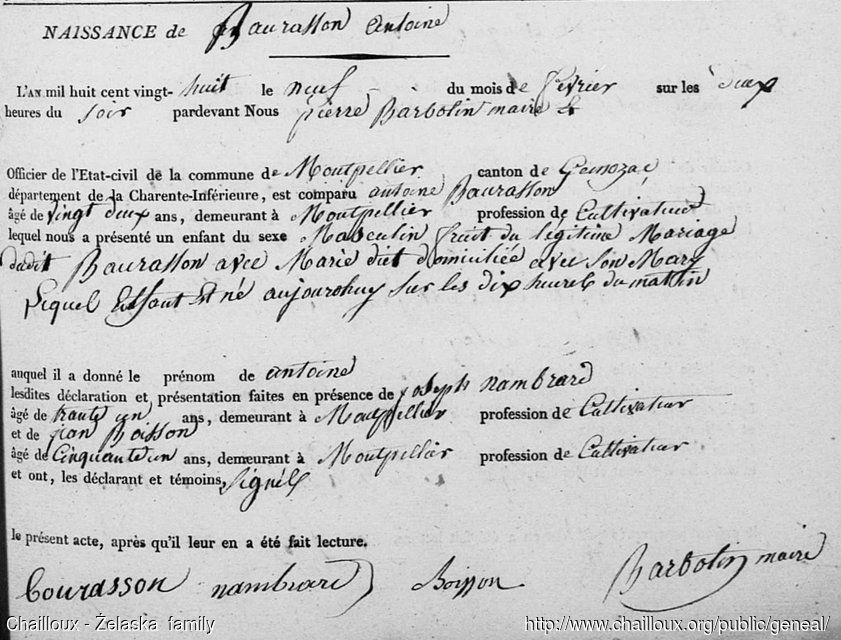 NAISSANCE de Baurasson antoine
L'AN mil huit cent vingt-huit le neuf du mois de fevrier sur les deux
heures du soir pardevant Nous pierre Barbotin maire
Officier de l'Etat-civil de la commune de Montpellier canton de Gemozac
département de la Charente-Inférieure, est comparu antoine Baurasson
âgé de vingt deux ans, demeurant à Montpellier profession de Cultivateur
lequel nous a présenté un enfant du sexe Masculin fruit du légitime Mariage
dudit Baurasson avec Marie diet domiciliée avec son Mary
Lequel Enfant Est né aujourdhuy sur les dix heures du mattin
auquel il a donné le prénom de antoine
lesdites déclaration et présentation faites en présence de joseph nambrard
âgé de trante un ans, demeurant à Montpellier profession de Cultivateur
et de jean Boisson
âgé de Cinquante un ans, demeurant à Montpellier profession de Cultivateur
et ont, les déclarant et témoins, signés
le présent acte, après qu'il leur en a été fait lecture.
Bourasson nambrard Boisson Barbotin maire
Chailloux - Żelaska family http://www.chailloux.org/public/geneal/